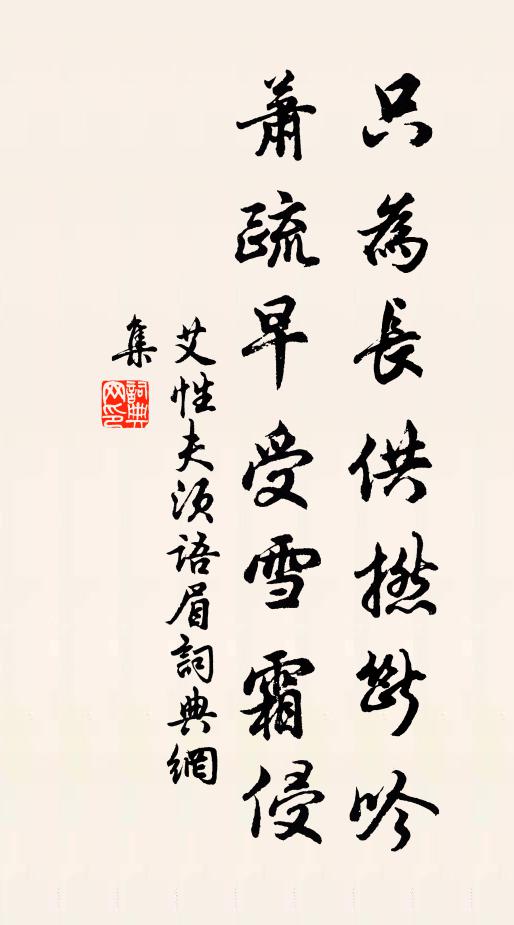 只為長供撚斷吟
蕭疏早受雪霜侵
艾性夫須语眉詞典網
集
詞典网印